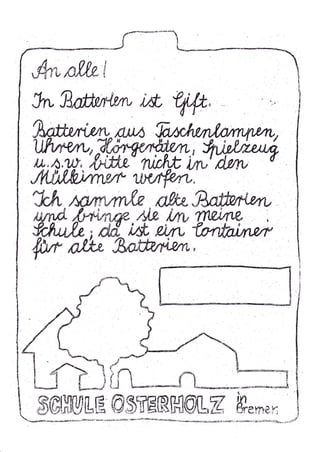 An alle!
In Batterien ist Gift.
Batterien aus Taschenlampen,
Uhren, Hörgeräten, Spielzeug
u.s.w. bitte nicht in den
Mülleimer werfen.
Ich sammle alte Batterien
und bringe sie in meine
Schule; da ist ein Container
für alte Batterien.
SCHULE OSTERHOLZ in
Bremen